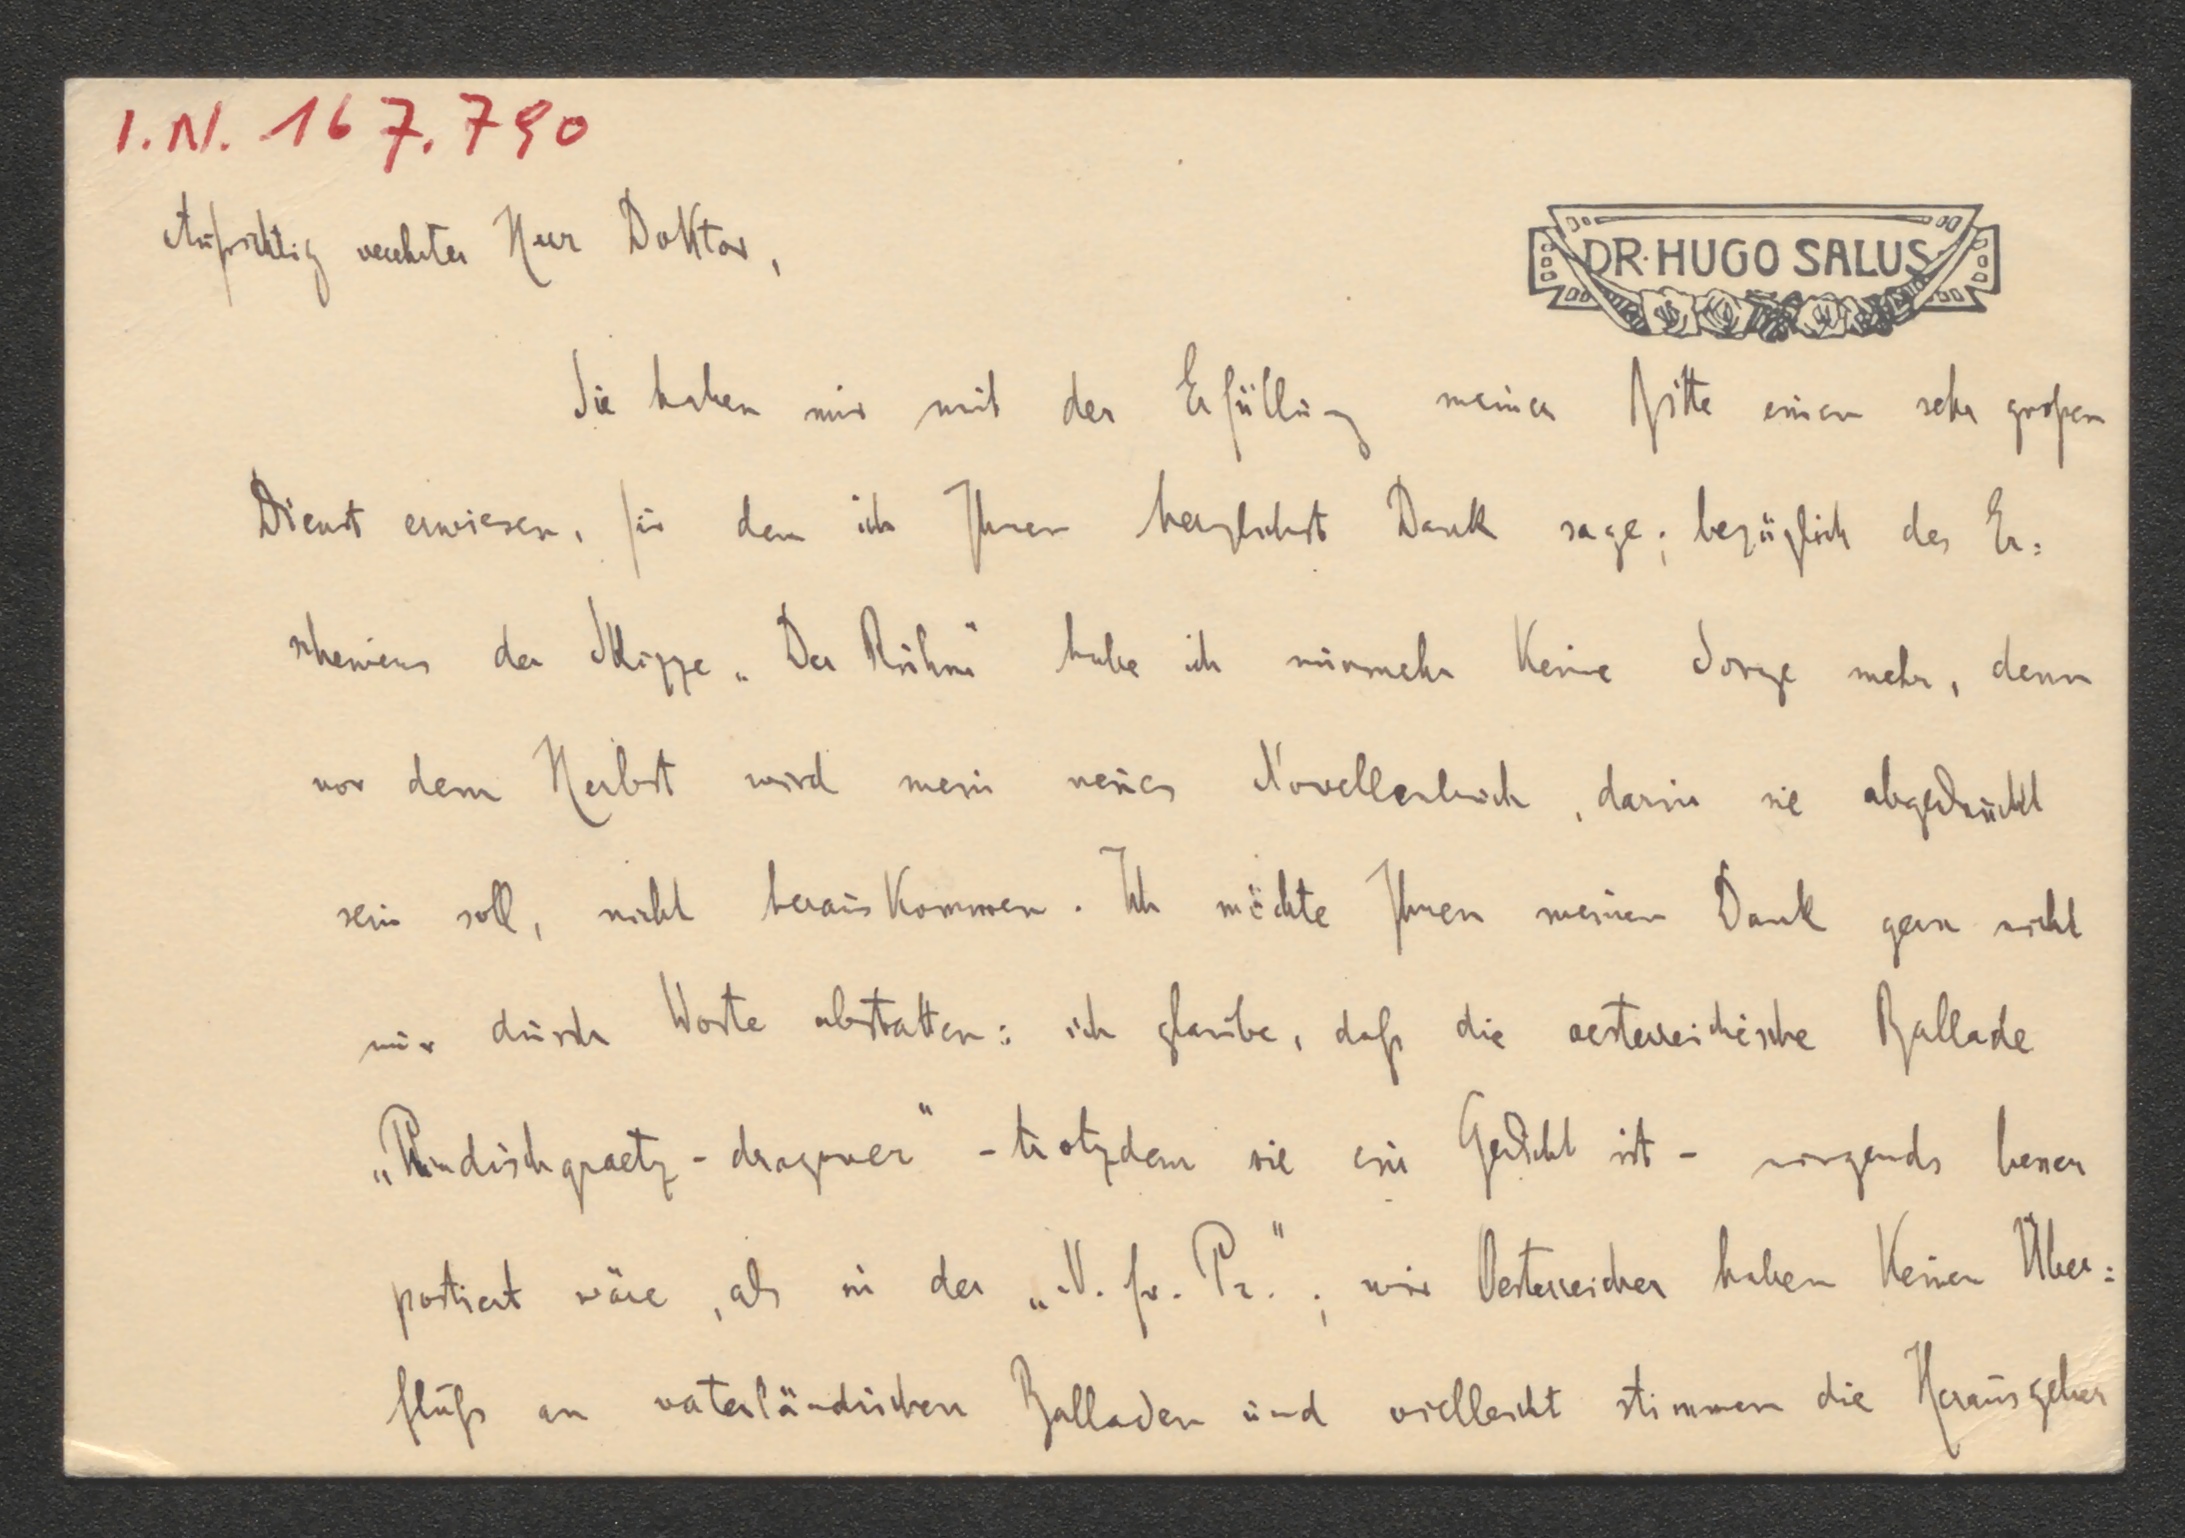 I.N. 167.790
Aufrichtig verehrter Herr Doktor,
DR. HUGO SALUS
Sie haben mir mit der Erfüllung meiner Bitte einen sehr großen
Dienst erwiesen, für den ich Ihnen herzlichst Dank sage; bezüglich des Er=
scheinens der Skizze „Der Ruhm" habe ich nunmehr keine Sorge mehr, denn
vor dem Herbst wird mein neues Novellenbuch, darin sie abgedruckt
sein soll, nicht herauskommen. Ich möchte Ihnen meinen Dank gern nicht
nur durch Worte abstatten: ich glaube, daß die oesterreichische Ballade
„Windischgraetz-dragoner" - trotzdem sie ein Gedicht ist - nirgends besser
postiert wäre, als in der „N. fr. Pr."; wir Oesterreicher haben keinen Über=
fluß an vaterländischen Balladen und vielleicht stimmen die Herausgeber